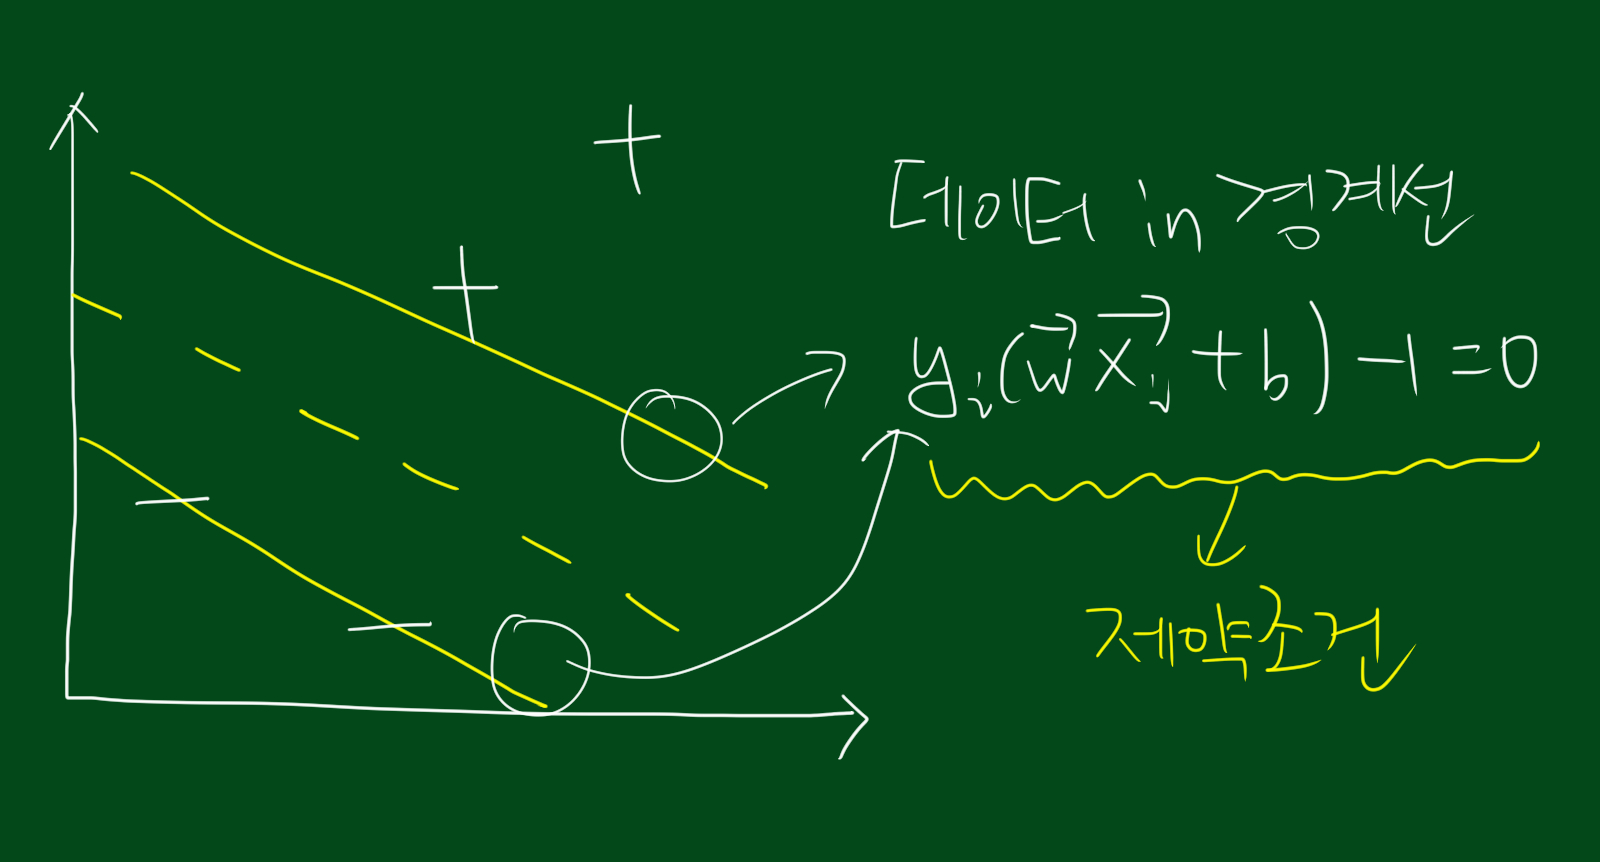 데이터 in 경계선
yᵢ(w⃗ x⃗ᵢ + b) - 1 = 0
제약조건
+
+
-
-